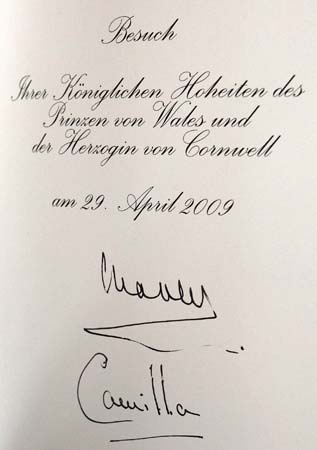 Besuch
Ihrer Königlichen Hoheiten des
Prinzen von Wales und
der Herzogin von Cornwell
am 29. April 2009
Charles
Camilla